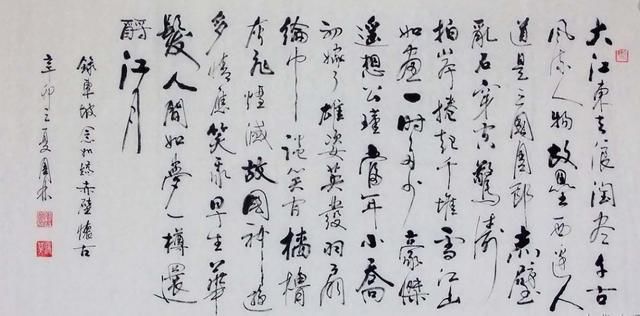 大江東去浪淘盡千古
風流人物故壘西邊人
道是三國周郎赤壁
亂石穿空驚濤
拍岸捲起千堆雪江山
如畫一時多少豪傑
遙想公瑾當年小喬
初嫁了雄姿英發羽扇
綸巾談笑間檣櫓
灰飛煙滅故國神遊
多情應笑我早生華
髮人間如夢一樽還
酹江月
錄東坡念奴嬌赤壁懷古
辛卯之夏周林